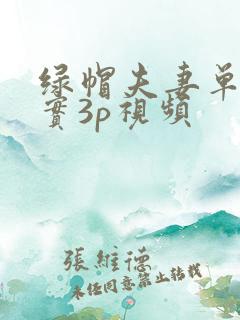 绿帽夫妻单
實3p視頻
張維德
未任同意禁止转载